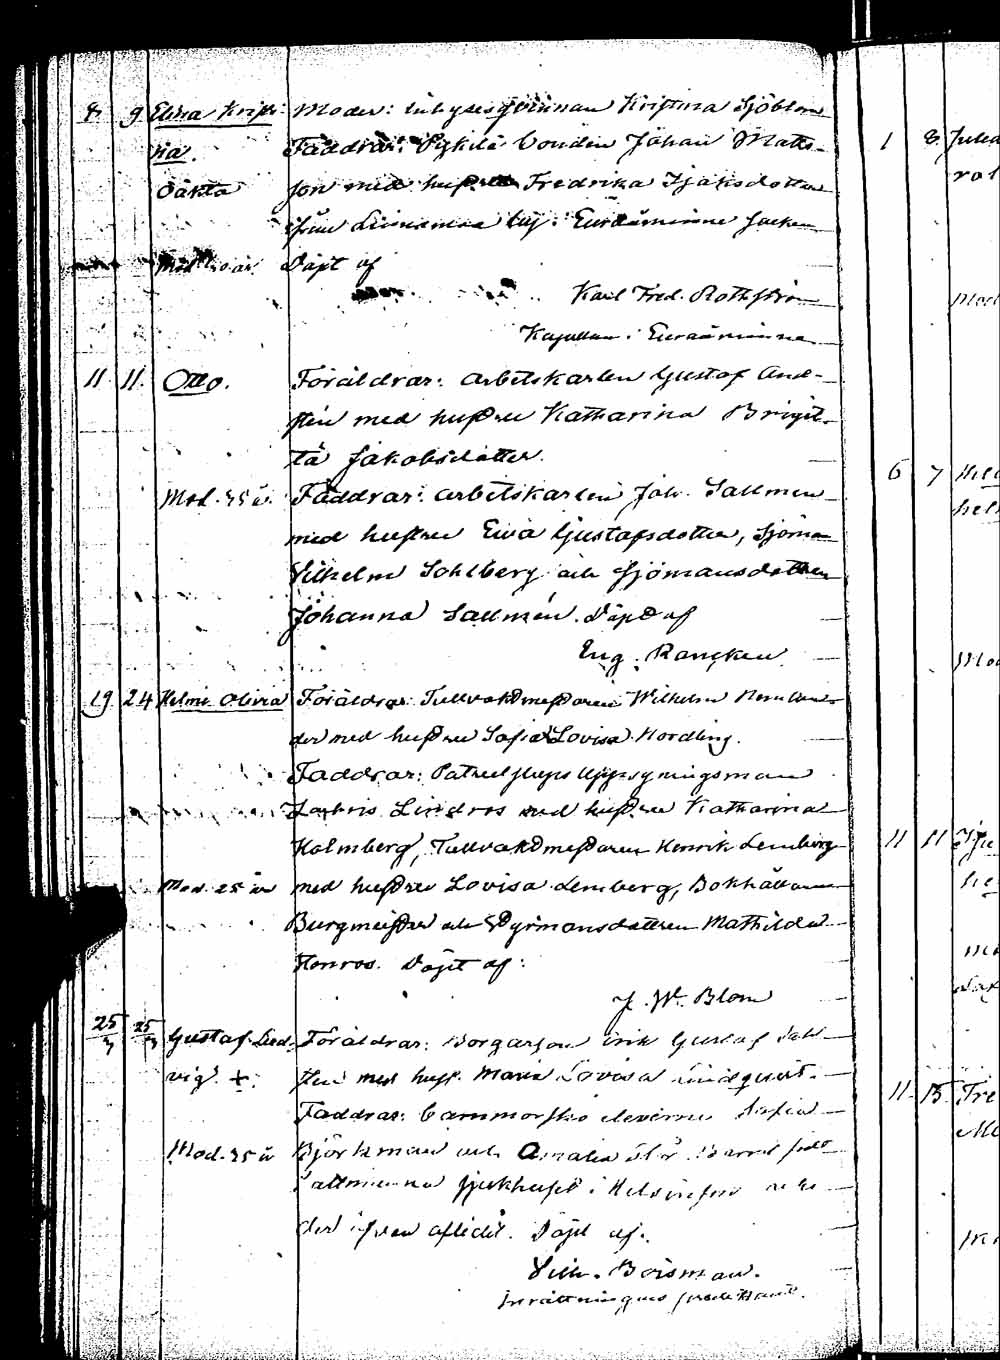 8. 9 Elina Kristi- Moder: inhyseqvinnan Kristina Sjöblom
na. Faddrar: Bonden Johan Matts-
Oäkta son med hustru Fredrika Isaksdotter
ifrån by i Euraåminne socken
Mod. 20 år. Döpt af
Karl Fred. Rothström
Kapellan i Euraåminne
11. 11. Otto. Föräldrar: Arbetskarlen Gustaf And-
stén med hustru Katharina Brigit-
ta Jakobsdotter.
Mod. 35 år. Faddrar: arbetskarlen Joh. Sallmén
med hustru Eva Gustafsdotter, Sjöman
Vilhelm Sohlberg och sjömansdottren
Johanna Sallmén. Döpt af
Eug. Rancken
19. 24 Helmi Olivia Föräldrar: Tullvaktmästaren Wilhelm
der med hustru Sofia Lovisa Nordling.
Faddrar: Uppsyningsman
Lindros med hustru Katharina
Holmberg, Tullvaktmästaren Henrik Lemberg
Mod. 25 år med hustru Lovisa Lemberg, Bokhållaren
Burgmeister och Styrmansdottren Mathilda
Döpt af:
J. W. Blom
25/7 25/7 Gustaf Lud- Föräldrar: Borgarson Erik Gustaf
vig. +. stén med hust. Maria Lovisa Lindqvist.
Faddrar: barnmorske eleverne Sofia
Mod. 35 år Björkman och Amalia Barnet född
i allmänna sjukhuset i Helsingfors och
der äfven aflidit. Döpt af.
Vilh. Boisman.
Inrättningens predikant.
1 8. Julia
Mod
6 7
hel
Mod
11 11
he
11. 15. Fre